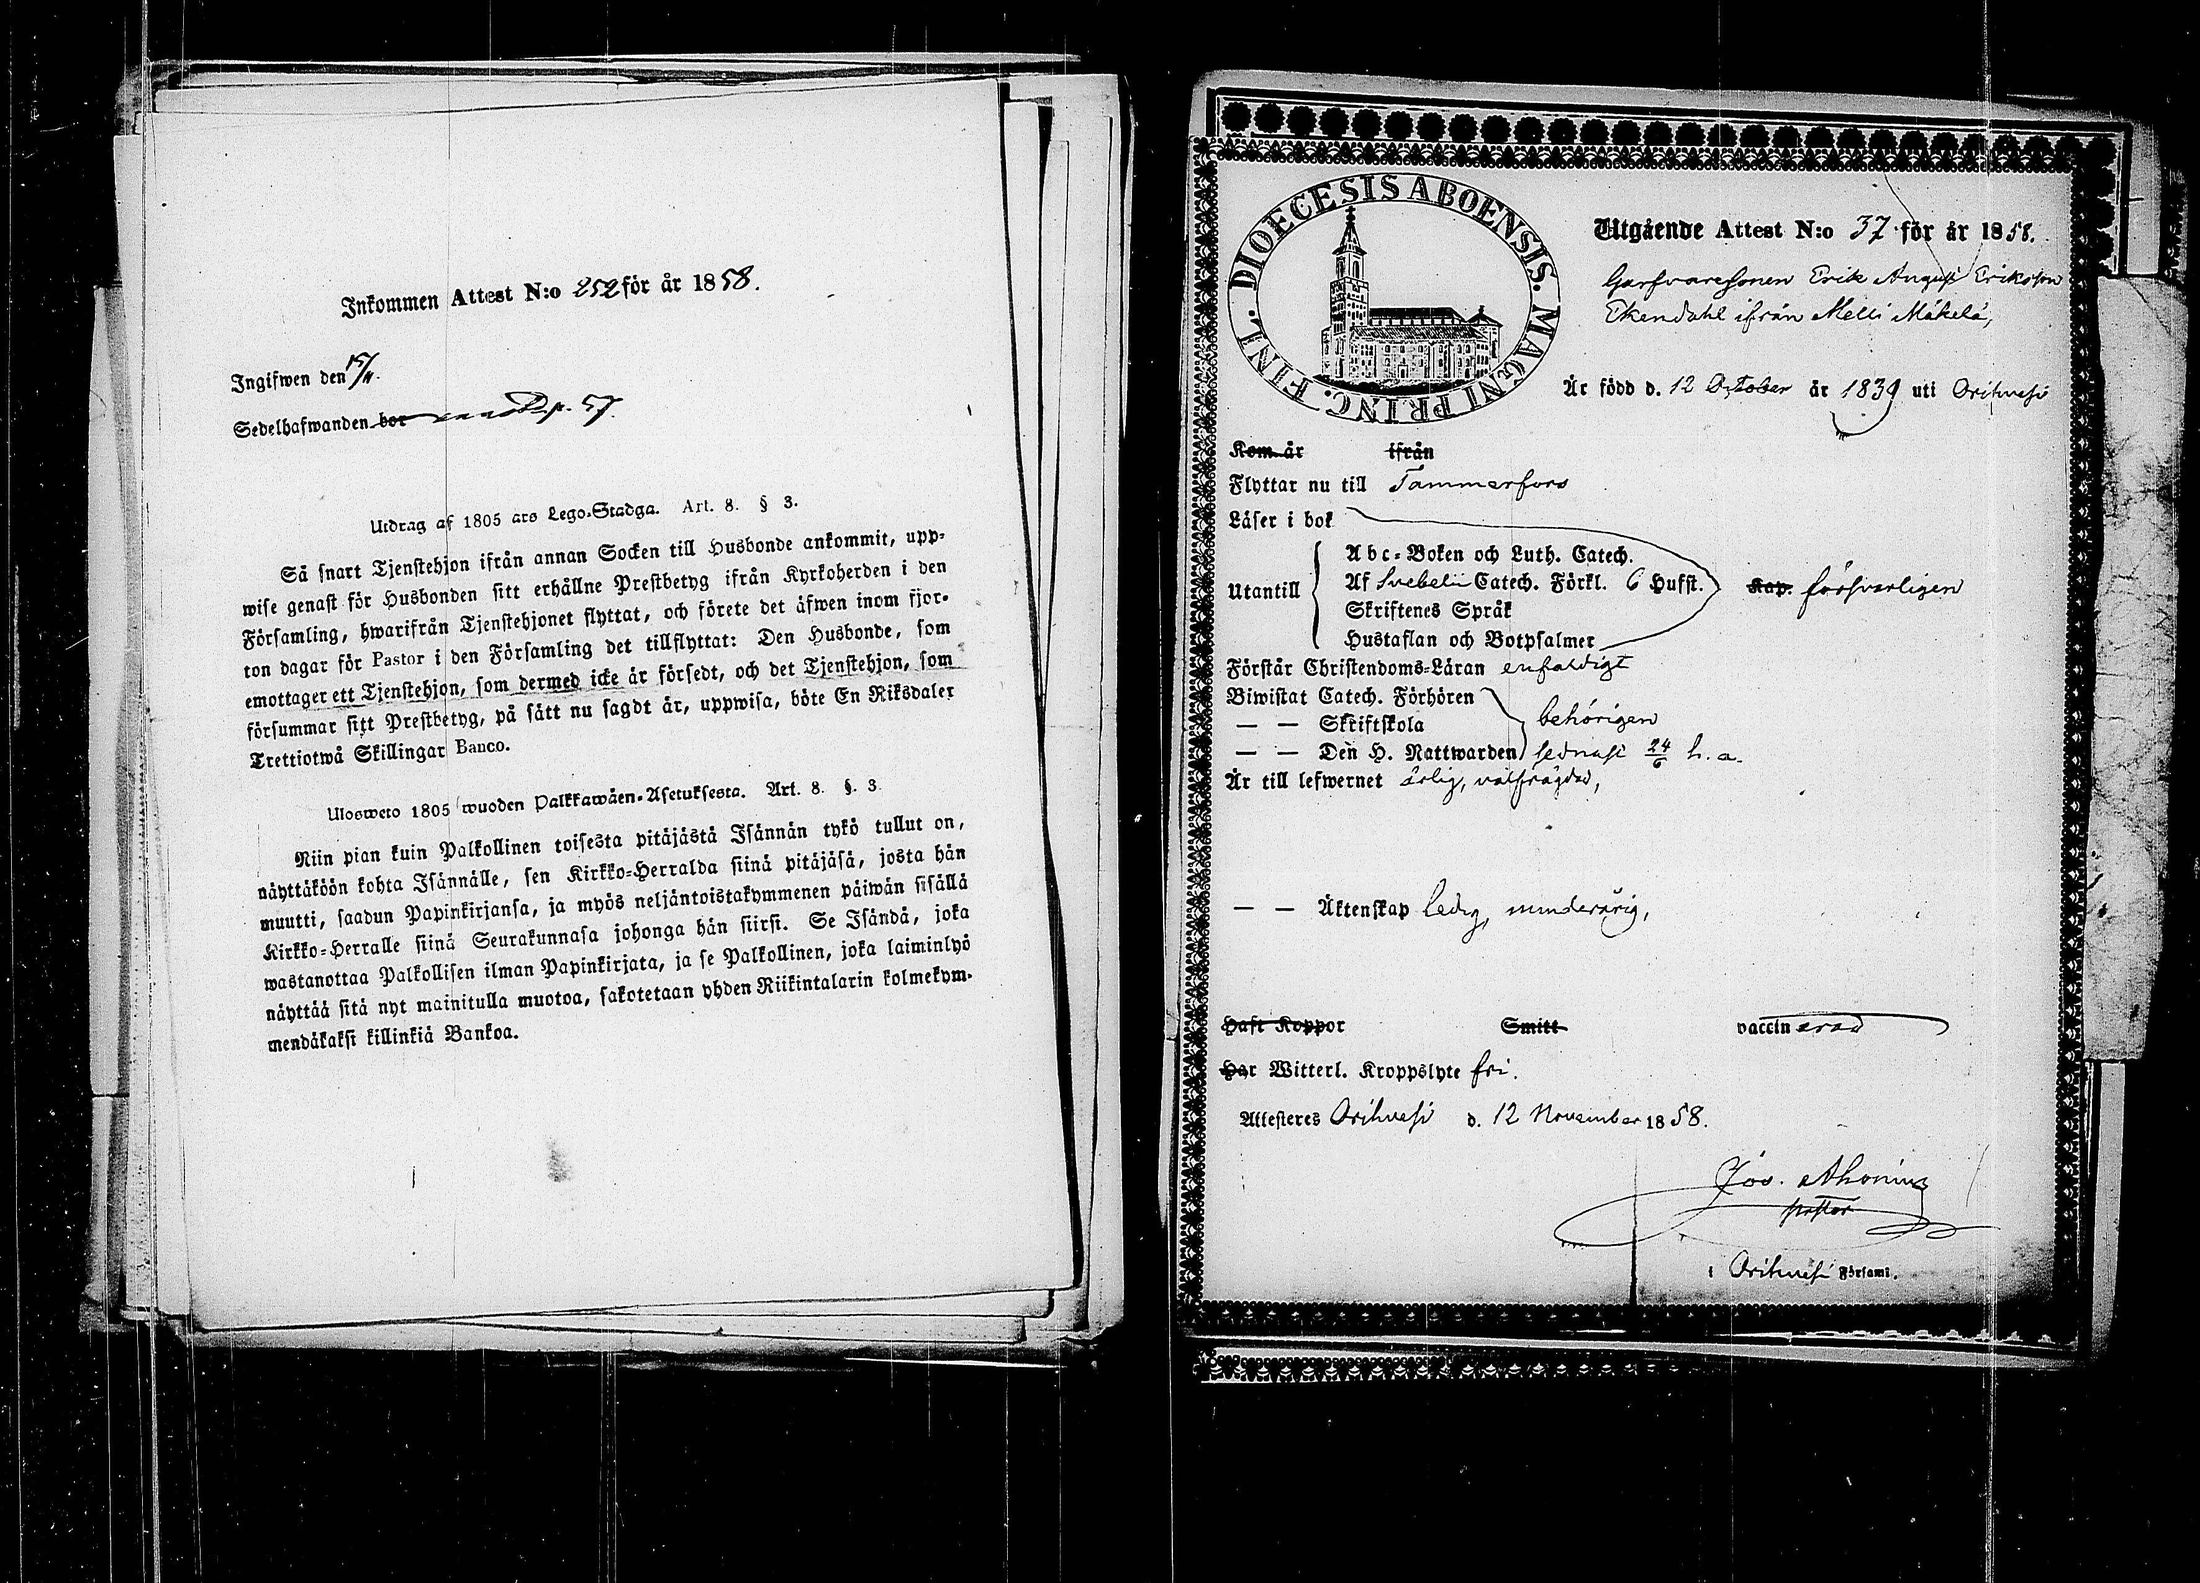 Inkommen Attest N:o 252 för år 1858.
Ingifwen den 15/11.
Sedelhafwanden bor p. 57.
Utdrag af 1805 års Lego-Stadga. Art. 8. § 3.
Så snart Tjenstehjon ifrån annan Socken till Husbonde ankommit, upp-
wise genast för Husbonden sitt erhållne Prestbetyg ifrån Kyrkoherden i den
Församling, hwarifrån Tjenstehjonet flyttat, och förete det äfwen inom fjor-
ton dagar för Pastor i den Församling det tillflyttat: Den Husbonde, som
emottager ett Tjenstehjon, som dermed icke är försedt, och det Tjenstehjon, som
försummar sitt Prestbetyg, på sätt nu sagdt är, uppwisa, böte En Riksdaler
Trettiotwå Skillingar Banco.
Uloswero 1805 wuoden Palkkawäen-Asetuksesta. Art. 8. §. 3.
Niin pian kuin Palkollinen toisesta pitäjästä Isännän tykö tullut on,
näyttäköön kohta Isännälle, sen Kirkko-Herralda siinä pitäjäsä, josta hän
muutti, saadun Papinkirjansa, ja myös neljäntoistakymmenen päiwän sisällä
Kirkko-Herralle siinä Seurakunnasa johonga hän siirsi. Se Isändä, joka
wastanottaa Palkollisen ilman Papinkirjata, ja se Palkollinen, joka laiminlyö
näyttää sitä nyt mainitulla muotoa, sakotetaan yhden Riikintalarin kolmekym-
mendäkaksi killinkiä Bankoa.
DIOECESIS ABOENSIS. MAGNI PRINC. FINL.
Utgående Attest N:o 37 för år 1858.
Garfvaresonen Erik August Eriksson
Ekendahl ifrån Melli Mäkelä,
Är född d. 12 October år 1839 uti Orihvesi
Kom år ifrån
Flyttar nu till Tammerfors
Läser i bok
Utantill
Abc-Boken och Luth. Catech.
Af Svebelii Catech. Förkl. 6 Hufst. Kap. försvarligen
Skriftenes Språk
Hustaflan och Botpsalmer
Förstår Christendoms-Läran enfaldigt
Biwistat Catech. Förhören
— — Skriftskola behörigen
— — Den H. Nattwarden sednast 24/6 h. a.
Är till lefwernet ärlig, välfrägdad,
— — Äktenskap ledig, minderårig,
Haft Koppor Smitt vaccinerad
Har Witterl. Kroppslyte fri.
Attesteres Orihvesi d. 12 November 1858.
Jos. Ahonius
pastor
i Orihvesi Församl.